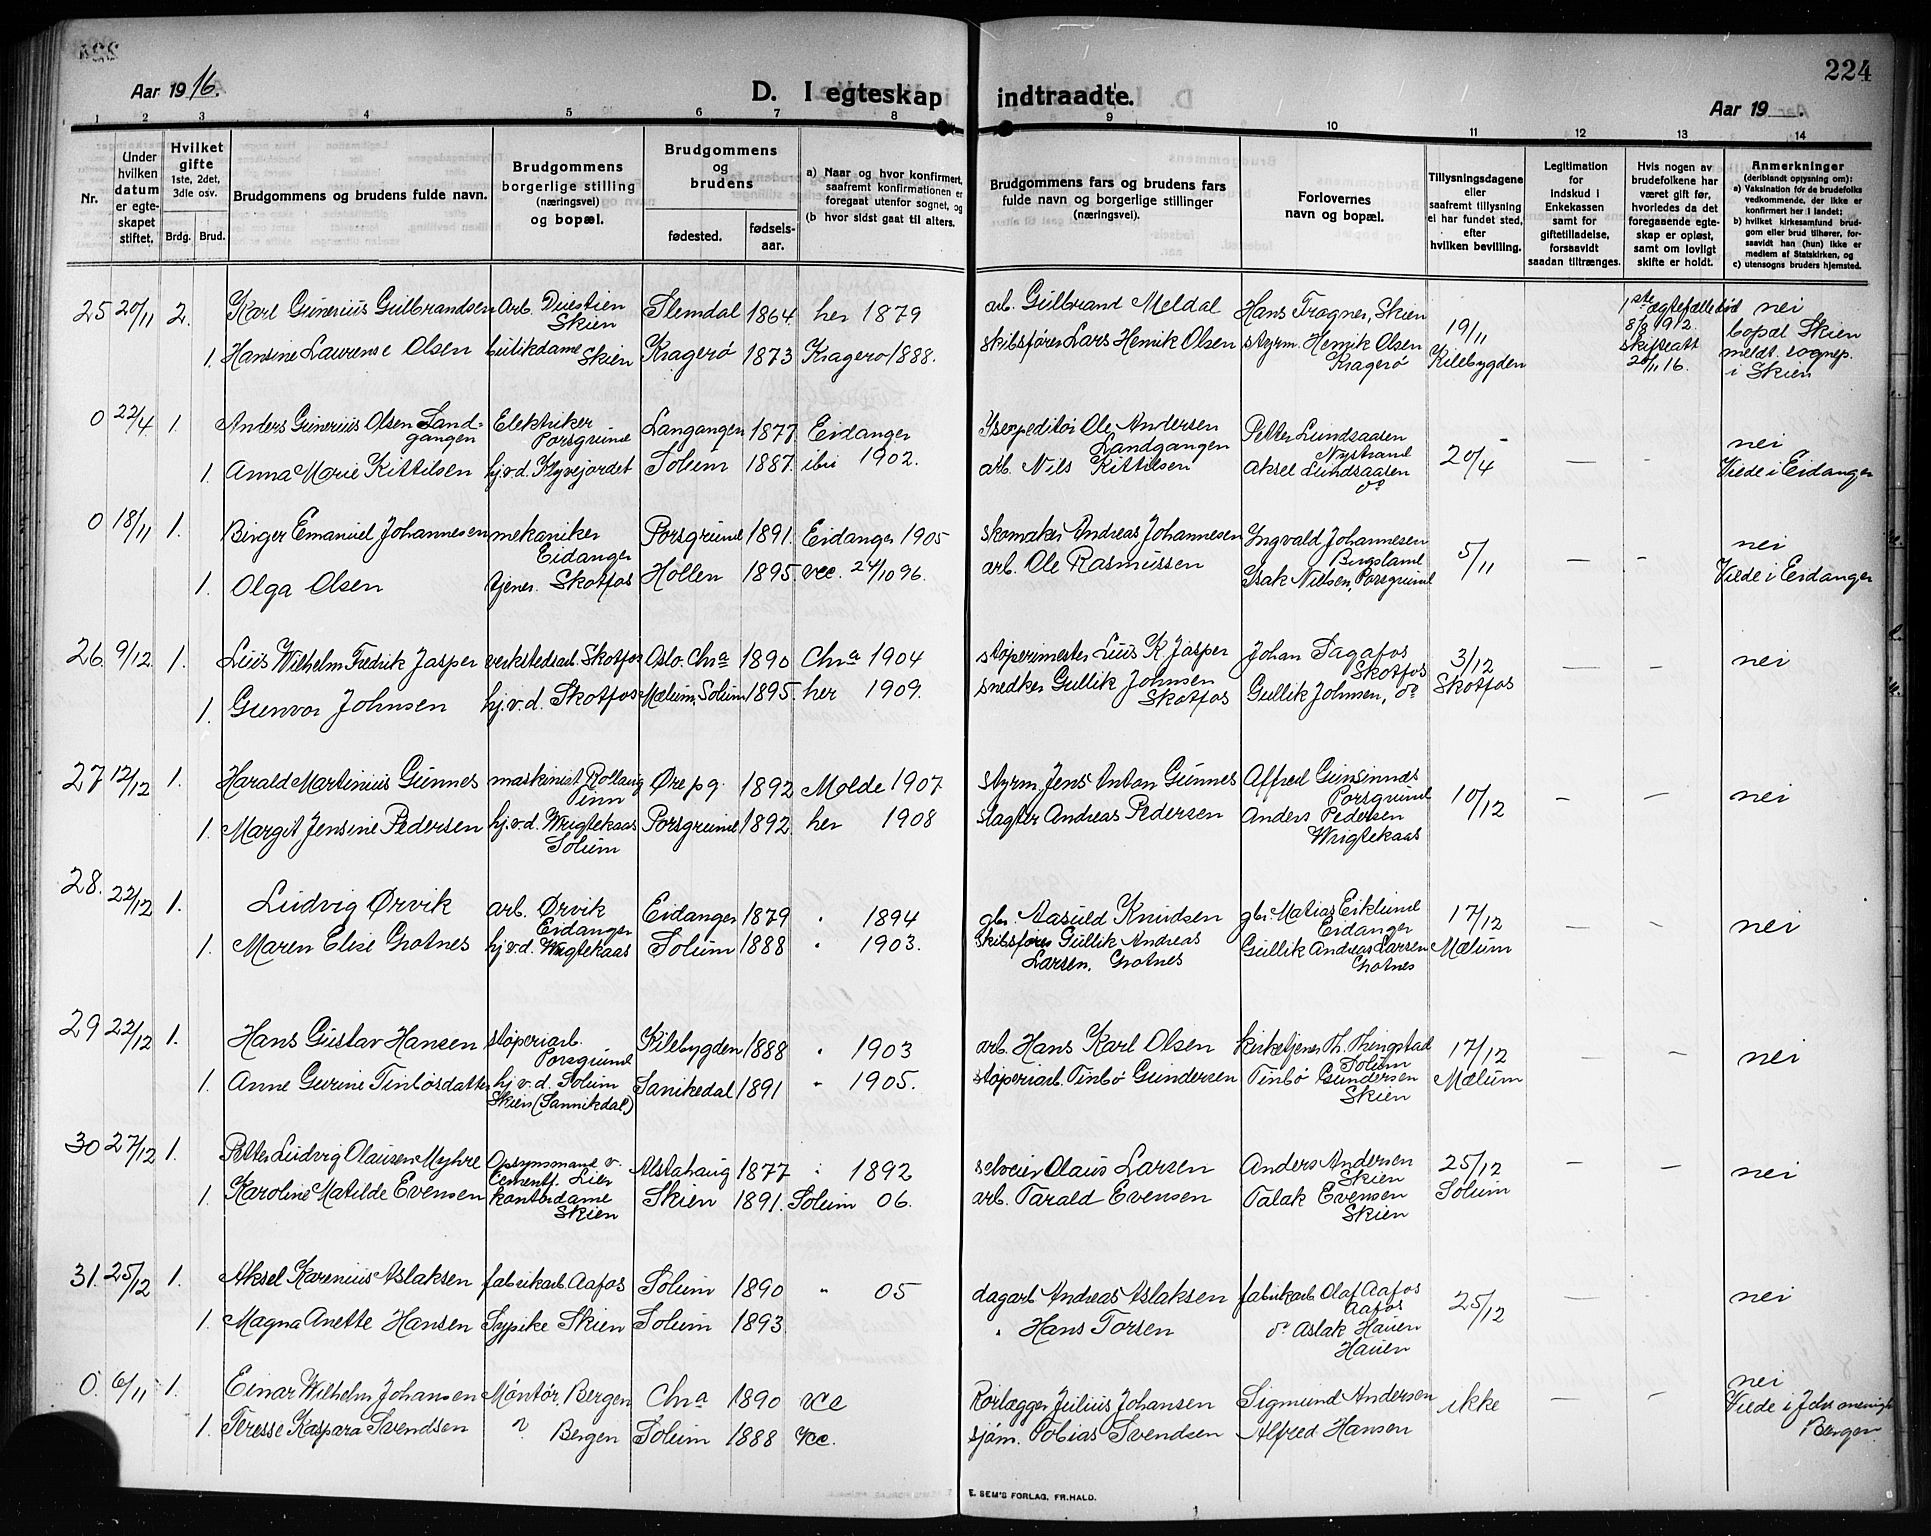 224
Aar 1916.
D. I egteskap indtraadte.
Aar 19 .
1 2 3 4 5 6 7 8 9 10 11 12 13 14
Nr.
Under hvilken datum er egteskapet stiftet.
Hvilket gifte 1ste, 2det, 3die osv.
Brdg. Brud.
Brudgommens og brudens fulde navn.
Brudgommens borgerlige stilling (næringsvei) og bopæl.
Brudgommens og brudens
fødested.
fødselsaar.
a) Naar og hvor konfirmert, saafremt konfirmationen er foregaat utenfor sognet, og
(b hvor sidst gaat til alters.
Brudgommens fars og brudens fars fulde navn og borgerlige stillinger (næringsvei).
Forlovernes navn og bopæl.
Tillysningsdagene eller saafremt tillysning ei har fundet sted, efter hvilken bevilling.
Legitimation for indskud i Enkekassen samt for giftetilladelse, forsaavidt saadan tiltrænges.
Hvis nogen av brudefolkene har været gift før, hvorledes da det foregaaende egteskap er opløst, samt om lovligt skifte er holdt.
Anmerkninger
(deriblandt oplysning om):
a) Vaksination før de brudefolks vedkommende, der ikke er konfirmert her i landet:
b) hvilket kirkesamfund brudgom eller brud tilhører, forsaavidt han (hun) ikke er medlem af Statskirken, og
c) utensogns bruders hjemsted.
25 20/11 2. Karl Gunerius Gulbrandsen arb. Duestien Skien Slemdal 1864 her 1879 arb. Gulbrand Meldal Hans Tragnes, Skien 19/11 1ste ægtefælle død 8/8 1912. skifteatt 20/11 16. nei bopæl Skien meldt sognep. i Skien
1. Hansine Laurense Olsen butikdame Skien Kragerø 1873 Kragerø 1888. skibsfører Lars Henrik Olsen styrm. Henrik Olsen Kragerø Kilebygden
0 22/4 1. Anders Gunerius Olsen Landgangen Elektriker Porsgrund Langangen 1877 Eidanger Isexpeditør Ole Andersen Landgangen Petter Lundsaasen Nystrand 20/4 — - nei Viede i Eidanger
1. Anna Marie Kittilsen hj.v.d. Klyvejordet Solum 1887. ibi 1902. arb. Nils Kittilsen Aksel Lundsaasen do
0 18/11 1. Birger Emanuel Johannesen mekaniker Eidanger Porsgrund 1891. Eidanger 1905 skomaker Andreas Johannesen Ingvald Johannesen Bergsland 5/11 — - nei Viede i Eidanger
1. Olga Olsen tjener. Skotfos Hollen 1895. vcc. 24/10 96. arb. Ole Rasmussen Isak Nielsen, Porsgrund
26. 9/12 1. Luis Wilhelm Fredrik Jasper verkstedsarb. Skotfos Oslo. Chra 1890 Chra 1904 støperimester Luis K. Jasper Johan Sagafos Skotfos 3/12 Skotfos — - nei
1. Gunvor Johnsen hj.v.d. Skotfos Mælum, Solum 1895. her 1909. snedker Gullik Johnsen Skotfos Gullik Johnsen, do
27 12/12 1. Harald Martinius Gunnes maskinist Rollaug Tinn Øre pg. 1892 Molde 1907 styrm Jens Anton Gunnes Alfred Porsgrund 10/12 - - nei
1. Margit Jensine Pedersen hj.v.d. Wrigtekaas Solum Porsgrund 1892 her 1908 slagter Andreas Pedersen Anders Pedersen Wrigtekaas
28. 22/12 1. Ludvig Ørvik arb. Ørvik Eidanger Eidanger 1879 " 1894 gbr. Aasuld Knudsen gbr. Matias Eiklund Eidanger 17/12 Mælum — - nei
1. Maren Elise Grotnes hj.v.d. Wrigtekaas Solum 1888 " 1903. Skibsfører Gullik Andreas Larsen, Grotnes Gullik Andreas Larsen Grotnes
29 22/12 1. Hans Gustav Hansen støperiarb. Porsgrund Kilebygden 1888 " 1903 arb. Hans Karl Olsen kirketjener Th. Thengstad Solum 17/12 Mælum - - nei
1. Anne Gurine Tinbosdatter hj.v.d. Solum Skien (Sannikdal) Sanikedal 1891 " 1905. støperiarb. Tinbo Gundersen Tinbo Gundersen Skien
30 27/12 1. Petter Ludvig Olausen Myhre Opsynsmand v. Cementf. Lier Alstahaug 1877 " 1892 selveier Olaus Larsen Anders Andersen Skien 25/12 Solum - - nei
1. Karoline Matilde Evensen kontordame Skien Skien 1891. Solum 06. arb. Tarald Evensen Talak Evensen Skien
31. 25/12 1. Aksel Karenius Aslaksen fabrikarb. Aafos Solum 1890 " 05 dagarb Andreas Aslaksen fabrikarb Olaf Aafos Aafos 25/12 — - nei
1. Magna Anette Hansen Sypike Skien Solum 1893 " Hans Torsen do Aslak Hauen Hauen
0. 6/11 1. Einar Wilhelm Johansen Møntør, Bergen Chra 1890 vcc Rørlægger Julius Johansen Sigmund Andersen ikke — - nei Viede i Joh menigh Bergen
1. Teresse Kaspara Svendsen Bergen Solum 1888 vcc. sjøm. Tobias Svendsen Alfred Hansen
E. SEM'S FORLAG, FR.HALD.
1